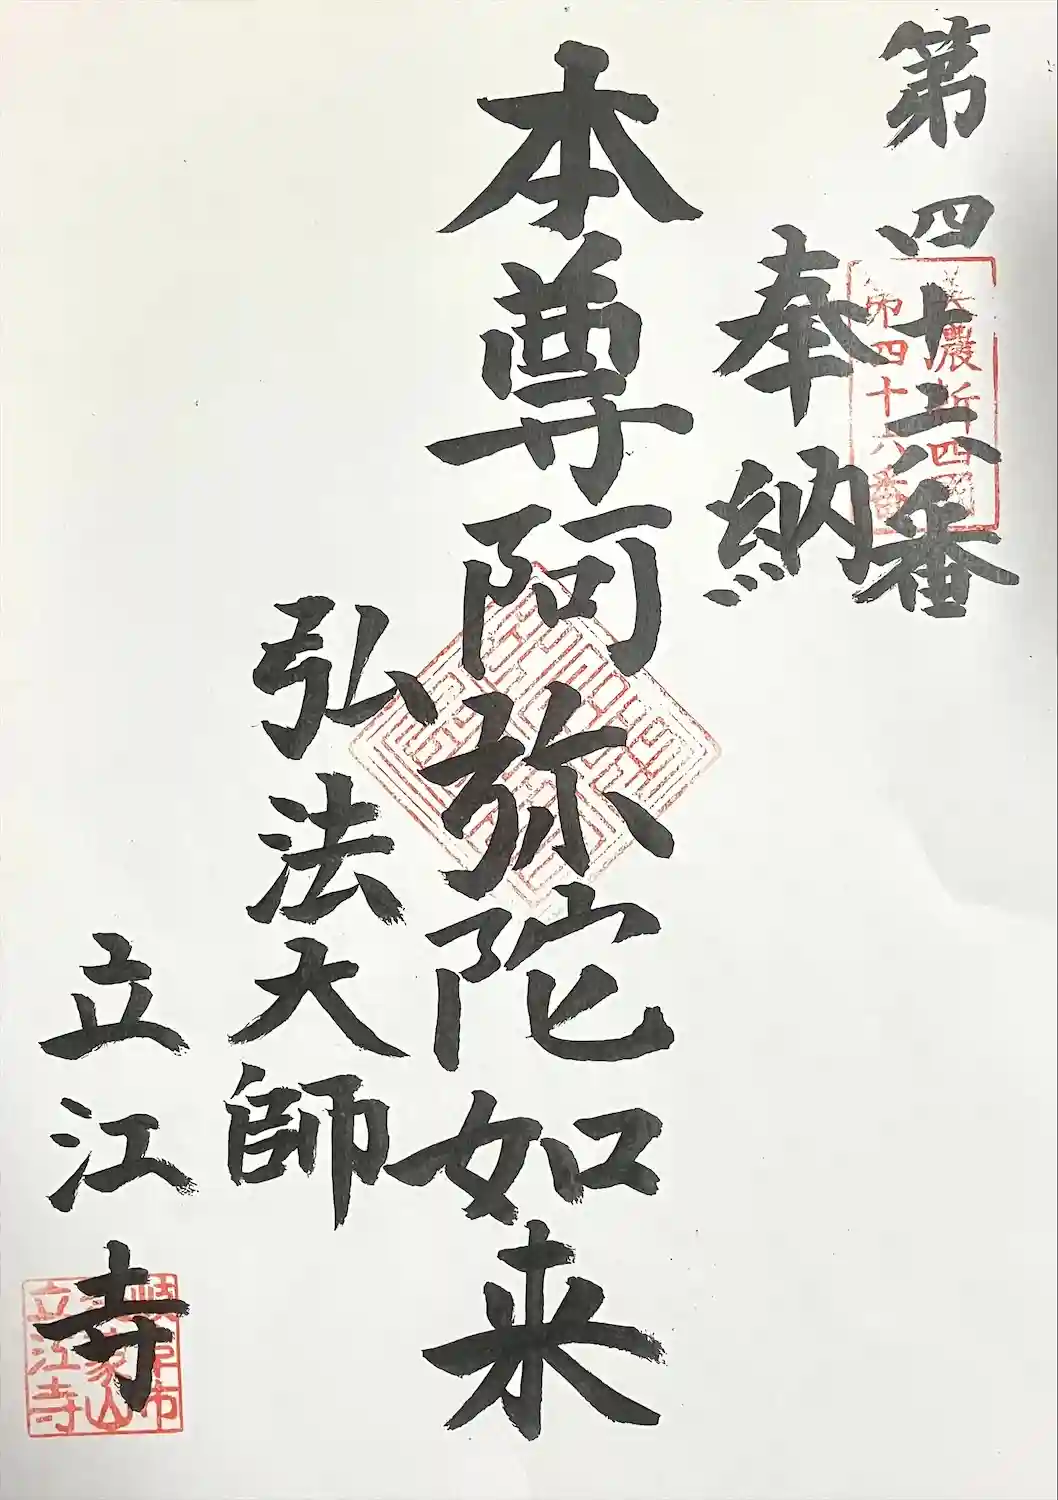 第四十六番
奉納
本尊阿弥陀如来
弘法大師
立江寺
美濃新四国
第四十六番
岐阜市
立江寺